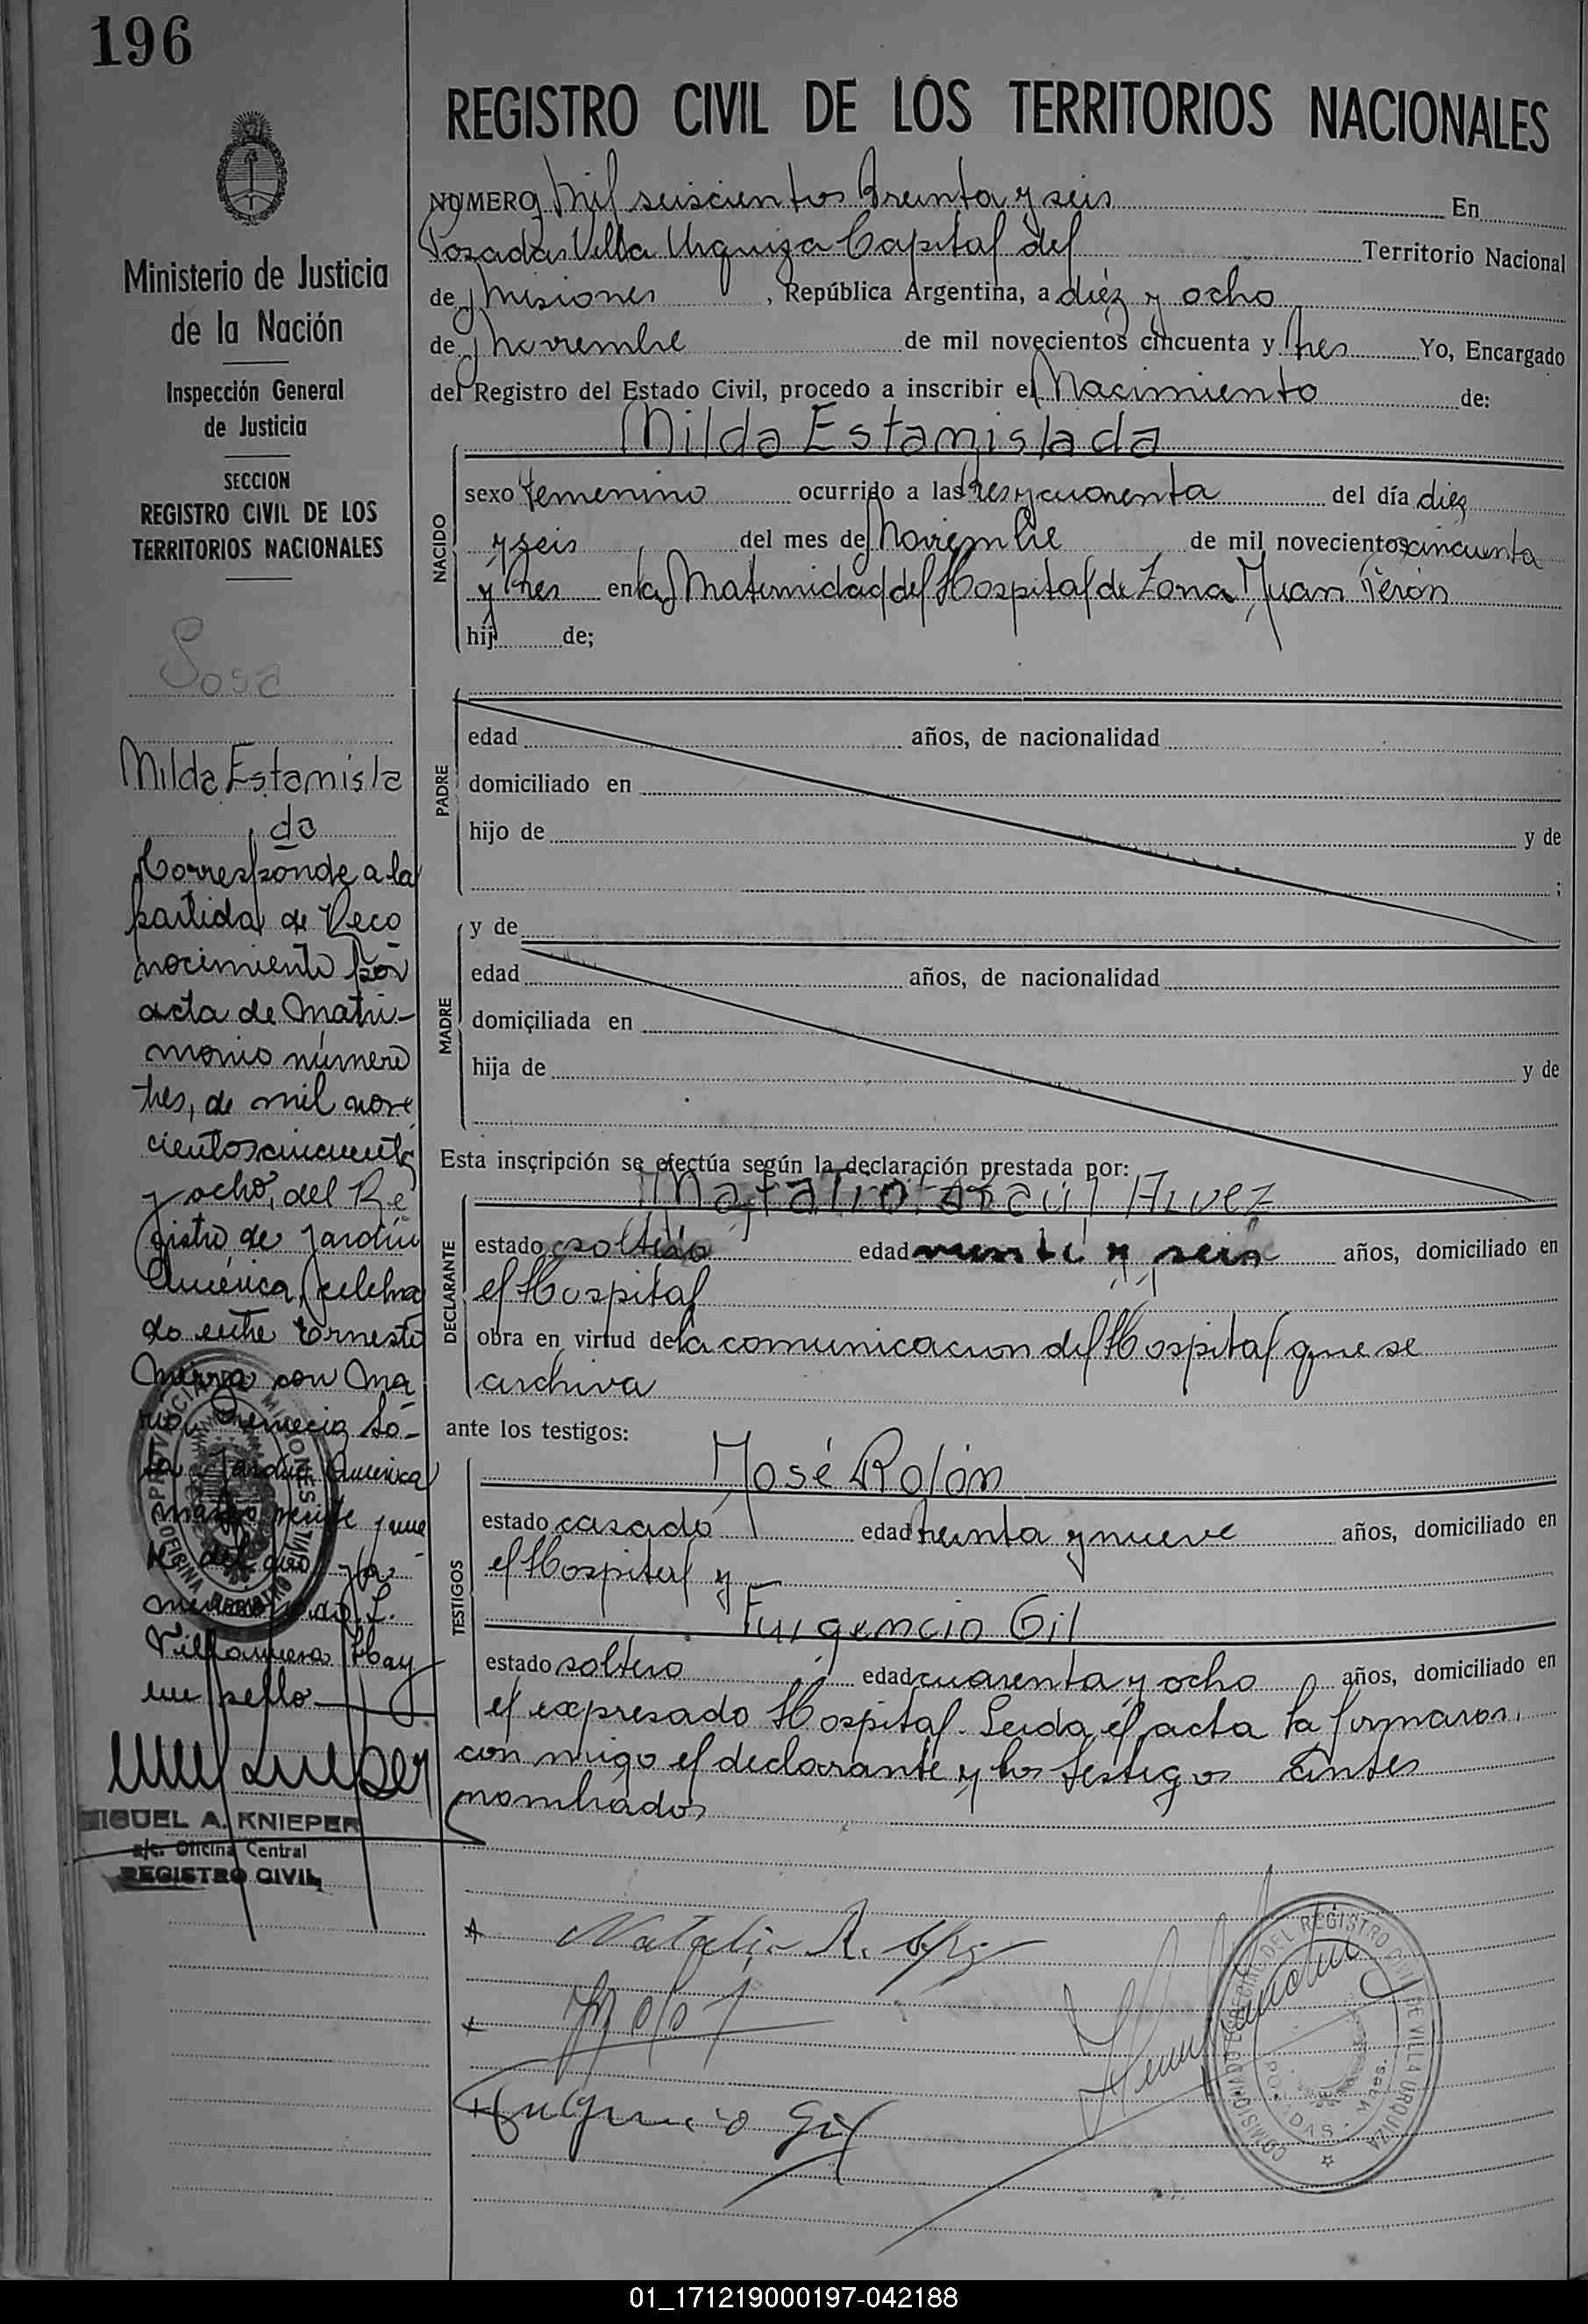 196
REGISTRO CIVIL DE LOS TERRITORIOS NACIONALES
Ministerio de Justicia
de la Nación
Inspección General
de Justicia
SECCION
REGISTRO CIVIL DE LOS
TERRITORIOS NACIONALES
Sosa
Milda Estanisla
da
Corresponde a la
partida de Reco
nocimiento por
acta de matri-
monio número
tres, de mil nove
cientos cincuenta
y ocho, del Re
gistro de Jardín
América, celebra
do entre Ernesto
con Ma
Jardín América
marzo veinte y nue
Villanueva Hay
un sello
MIGUEL A. KNIEPER
a/c. Oficina Central
REGISTRO CIVIL
NUMERO Mil seiscientos treinta y seis En
Posadas Villa Urquiza Capital del Territorio Nacional
de Misiones, República Argentina, a diéz y ocho
de Noviembre de mil novecientos cincuenta y tres Yo, Encargado
del Registro del Estado Civil, procedo a inscribir el Nacimiento de:
NACIDO
Milda Estanislada
sexo femenino ocurrido a las tres y cuarenta del día diez
y seis del mes de Noviembre de mil novecientos cincuenta
y tres en la Maternidad del Hospital de Zona Juan Perón
hij de;
PADRE
edad años, de nacionalidad
domiciliado en
hijo de y de
;
MADRE
y de
edad años, de nacionalidad
domiciliada en
hija de y de
Esta inscripción se efectúa según la declaración prestada por:
DECLARANTE
Natalio Raúl Alvez
estado soltero edad veinte y seis años, domiciliado en
el Hospital
obra en virtud de la comunicacion del Hospital que se
archiva
ante los testigos:
TESTIGOS
José Rolón
estado casado edad treinta y nueve años, domiciliado en
el Hospital y
Fulgencio Gil
estado soltero edad cuarenta y ocho años, domiciliado en
el expresado Hospital. Leida el acta la firmaron,
con migo el declarante y los testigos antes
nombrados
Natalio R.
Fulgencio Gil
REGISTRO CIVIL DE VILLA URQUIZA
POSADAS
01_171219000197-042188